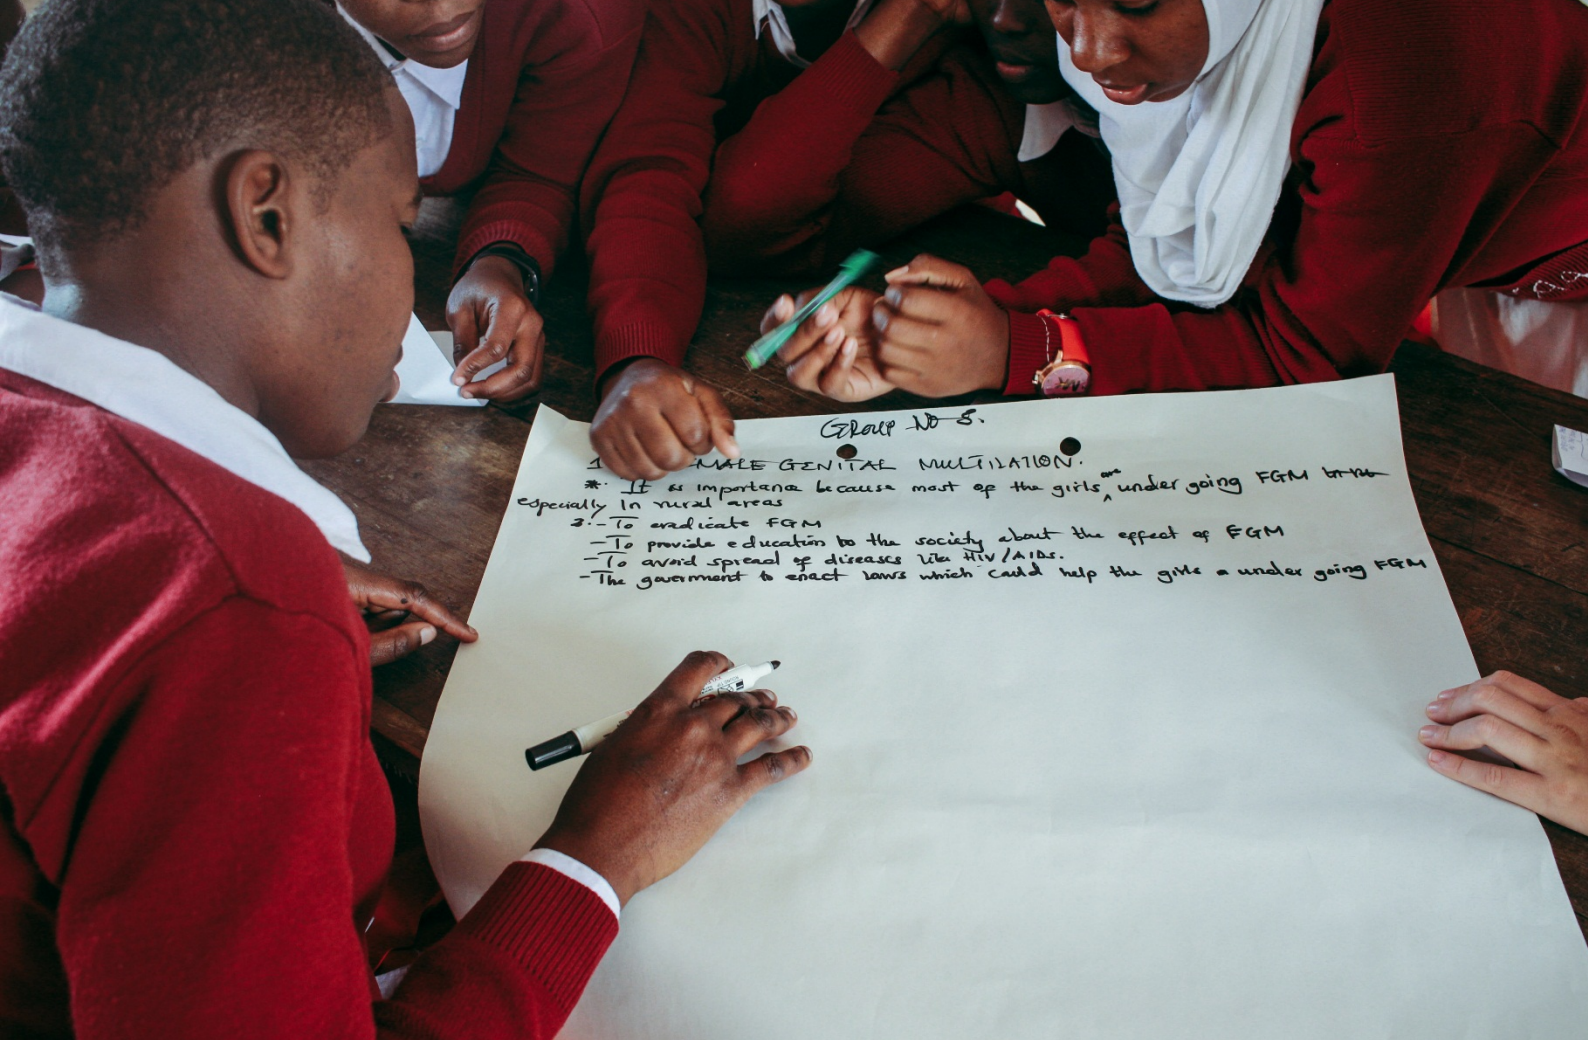 GROUP NO 8.
1 MALE GENITAL MULTILATION.
*. It is importance because most of the girls are under going FGM
especially in rural areas
3. - To eradicate FGM
- To provide education to the society about the effect of FGM
- To avoid spread of diseases like HIV/AIDs.
- The goverment to enact laws which could help the girls a under going FGM